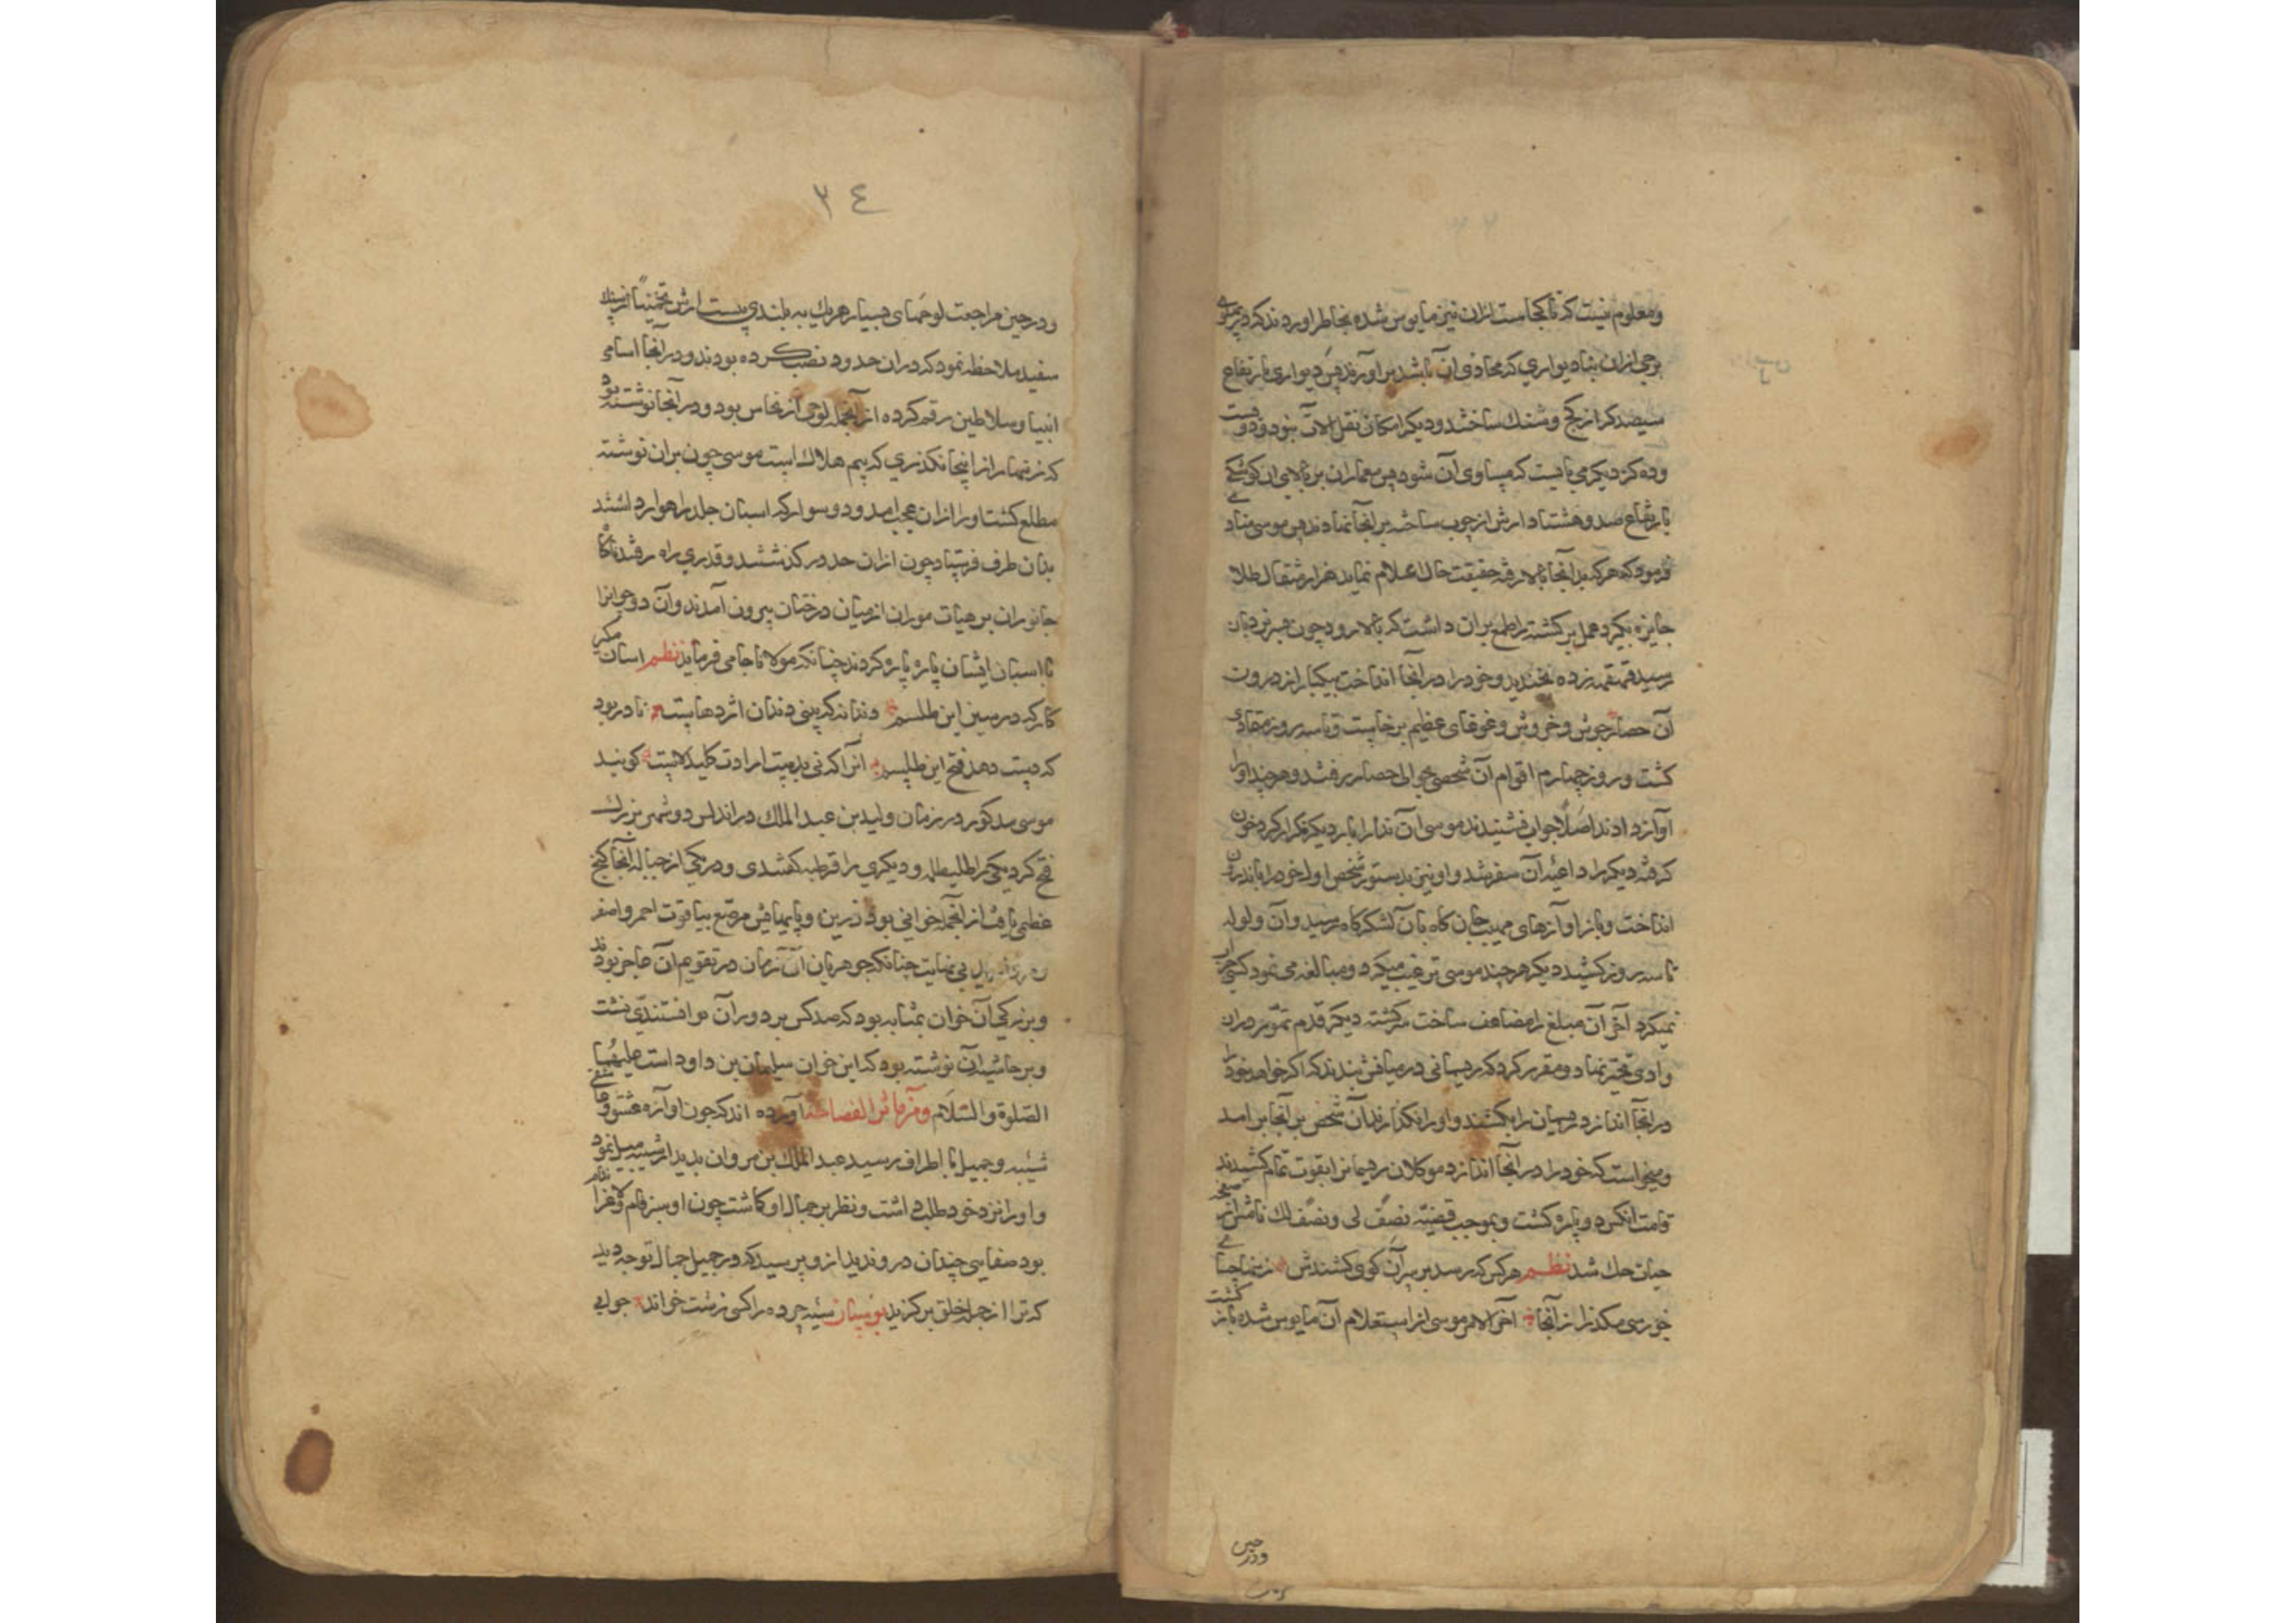 و معلوم نیست که تا کجاست ازان نیز مایوس شده بخاطر اوردند که در پهلوی
برجی ازان بنا دیواری که محاذی آن باشد بر آورند پس دیواری بارتفاع
سیصد کز از کج و سنک ساختند و دیکر امکان نقل الات نبود و دویست
و ده کز دیکر می بایست که مساوی آن شود پس معماران بر بالای ان کوشکی
بارتفاع صد و هشتاد ارش از چوب ساخته بر انجا نهادند پس موسی منادی
فرمود که هر که بر آنجا بالا رفته حقیقت حال اعلام نماید هزار مثقال طلا
جایزه بکیرد عمل بر کشته را طمع بران داشت که بالا رود چون بسر نردبان
رسید قهقهه زده بخندید و خود را در آنجا انداخت بیکبار از درون
آن حصار جوش و خروش و غوغای عظیم برخاست و تا سه روز متمادی
کشت و روز چهارم اقوام آن شخص بحوالی حصار رفتند و هر چند او را
آواز دادند اصلا جواب نشنیدند موسی آن ندا را بار دیکر تکرار کرد خون
کرفته دیکر را داعیه آن سفر شد و او نیز بدستور شخص اول خود را باندرون
انداخت و باز اوازهای مهیب جان کاه بآن لشکرکاه رسید و آن ولوله
تا سه روز کشید دیکر هر چند موسی ترغیب میکرد و مبالغه می نمود کسی جرات
نمیکرد آخر آن مبلغ را مضاعف ساخت سرکشته دیکر قدم تهور دران
وادی تحیر نهاد و مقرر کرد که ریسمانی در میانش بندند که اکر خواهد خود را
در انجا اندازد ریسمان را بکشند و او را نکذارند آن شخص بر آنجا بر امد
و میخواست که خود را در آنجا اندازد موکلان ریسمانرا بقوت تمام کشیدند
قامت انکس دو پاره کشت و بموجب قضیه نصف لی و نصف لک نامش از صفحه
حیات حک شد نظم هر کس که رسد بر سر آن کوی کشندش زنهار چنانچه
خورسی مکذر از آنجا آخر الامر موسی از استعلام آن مایوس شده باز کشت
و در حین
٣٤
و در حین مراجعت لوحهای بسیار هریک به بلندی بیست ارش تخمینا از سنک
سفید ملاحظه نمود که دران حدود نصب کرده بودند و در آنجا اسامی
انبیا و سلاطین رقم کرده از آنجمله لوحی از نحاس بود و در آنجا نوشته بود
که زنهار از اینجا نکذری که بیم هلاک است موسی چون بران نوشته
مطلع کشت او را ازان عجب امد و دو سوار که اسبان جلد راهوار داشتند
بدان طرف فرستاد چون ازان حدود کذشتند و قدری راه رفتند ناکاه
جانوران بر هیات موران از میان درختان بیرون آمدند و آن دو جوانرا
با اسبان ایشان پاره پاره کردند چنانکه مولانا جامی فرماید نظم اسان مکیر
کار که در سین این طلسم دندانه که بینی دندان اژدهاست نادر بود
که دست دهد فتح این طلسم انرا که نی بدست ارادت کلید لاست کویند
موسی مدکور در زمان ولید بن عبد الملک در اندلس دو شهر بزرک
فتح کرد یکی را طلیطله و دیکری را قرطبه کفتندی و در یکی از جبال انجا کنج
عظمی یافت از انجمله خوانی بود زرین و پایهایش مرصع بیاقوت احمر و اصفر
بی نهایت چنانکه جوهریان آن زمان در تقویم آن عاجز بودند
و بزرکی آن خوان بمثابه بود که صد کس بر دور آن توانستندی نشست
و بر حاشیه آن نوشته بود که این خوان سلیمان بن داود است علیهما
الصلوة و السلام و زمانی الفصاحه آورده اند که چون اوازه عشق و عاشقی
شیبه و جمیل باطراف رسید عبد الملک بن مروان بدیدار شیبه میل نمود
و او را نزد خود طلب داشت و نظر بر جمال او کاشت چون او سبز فام و لاغر اندام
بود صفایی چندان درو ندید ازو پرسید که در جمیل جمال تو چه دید
که ترا از جمله خلق بر کزید بوستان سیه چرده را کسی زشت خواند جوابی